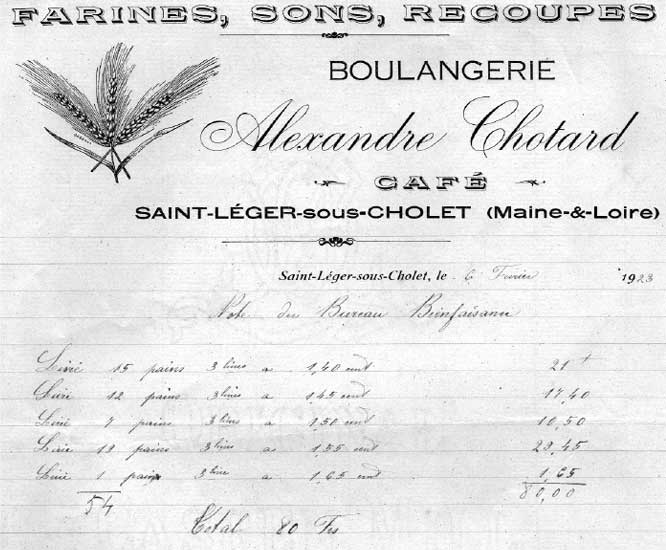 FARINES, SONS, RECOUPES
BOULANGERIE
Alexandre Chotard
CAFÉ
SAINT-LÉGER-sous-CHOLET (Maine-&-Loire)
Saint-Léger-sous-Cholet, le 6 Fevrier 1923
Note du Bureau Bienfaisance
Livré 15 pains 3 livres a 1,40 cent 21 f
Livré 12 pains 3 livres a 1,45 cent 17,40
Livré 7 pains 3 livres a 1,50 cent 10,50
Livré 19 pains 3 livres a 1,55 cent 29,45
Livré 1 pain 3 livres a 1,65 cent 1,65
54 80,00
Total 80 Frs